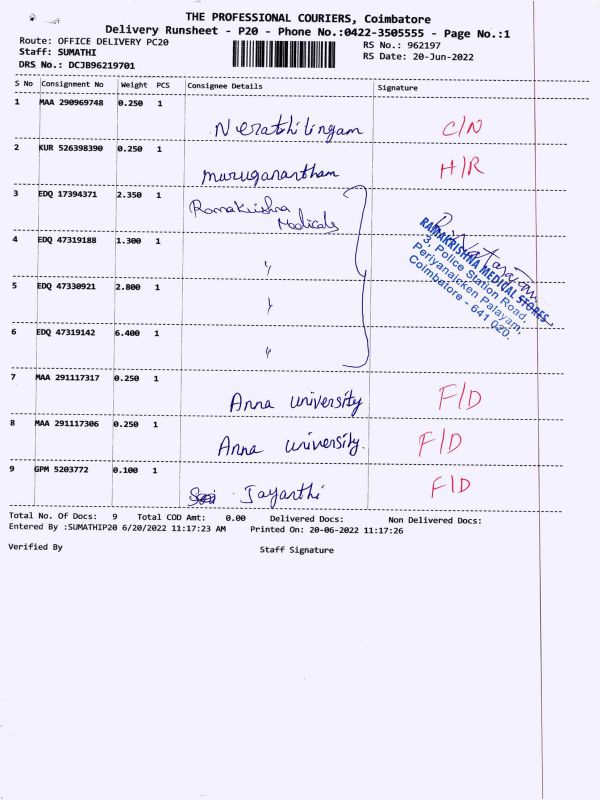 THE PROFESSIONAL COURIERS, Coimbatore
Delivery Runsheet - P20 - Phone No.:0422-3505555 - Page No.:1
Route: OFFICE DELIVERY PC20
RS No.: 962197
Staff: SUMATHI
RS Date: 20-Jun-2022
DRS No.: DCJB96219701
S No Consignment No Weight PCS Consignee Details Signature
1 MAA 290969748 0.250 1
C/N
2 KUR 526398390 0.250 1
muruganantham H/R
3 EDQ 17394371 2.350 1 Ramakrishna
Medicals
4 EDQ 47319188 1.300 1 "
RAMAKRISHNA MEDICAL STORES
3, Police Station Road,
Periyanaicken Palayam,
Coimbatore - 641 020.
5 EDQ 47330921 2.800 1 "
6 EDQ 47319142 6.400 1 "
7 MAA 291117317 0.250 1
Anna university F/D
8 MAA 291117306 0.250 1
Anna university. F/D
9 GPM 5203772 0.100 1
Jayanthi F/D
Total No. Of Docs: 9 Total COD Amt: 0.00 Delivered Docs: Non Delivered Docs:
Entered By :SUMATHIP20 6/20/2022 11:17:23 AM Printed On: 20-06-2022 11:17:26
Verified By Staff Signature